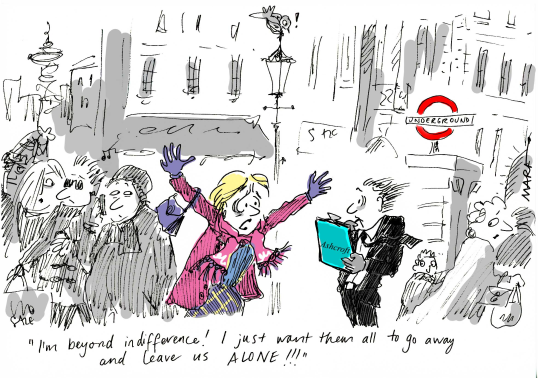 UNDERGROUND
Ashcroft
MARF
"I'm beyond indifference! I just want them all to go away
and leave us ALONE!!!"